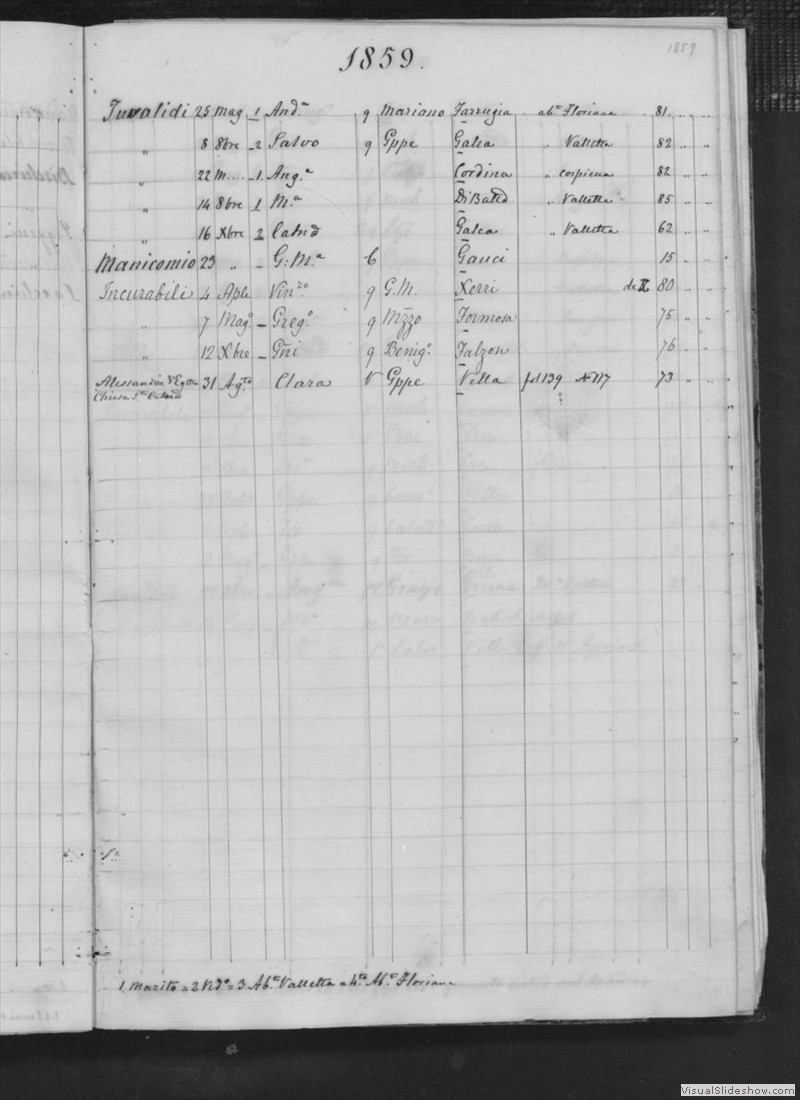 1859.
1859
Invalidi 25 Mag. 1 And.ª q Mariano Farrugia ab.te Floriana 81 „ „
„ 8 8bre 2 Salvo q Gppe Galea „ Valletta 82 „ „
„ 22 M.... 1. Ang.ª Cordina „ cospicua 82 „ „
„ 14 8bre 1 M.ª DiBatt „ Valletta 85 „ „
„ 16 Xbre 2 Catnd Galea „ Valletta 62 „ „
Manicomio 23 „ G: M.ª Gauci 15 „ „
Incurabili 4 Aple Vin.zo q G.M. Xerri de 80 „ „
„ 7 Mag.o Greg.o q Mzzo Formosa 75 „ „
„ 12 Xbre Gni q Benig.o Falzon 76 „ „
Alessandria d'Egtto 31 Ag.to Clara V Gppe Vella fol 139 No 117 73 „ „
Chiesa S.ta Catnd
1. Marito = 2 Vd.o = 3. Ab.te Valletta = 4.ta Ab.te Floriana
VisualSlideshow.com